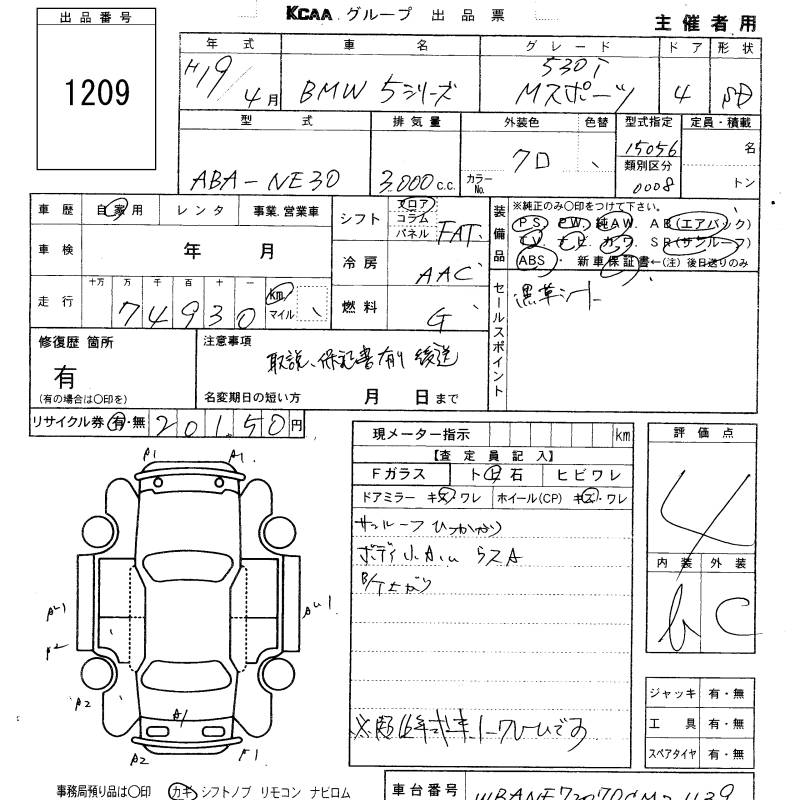 KCAA グループ 出品票
主催者用
出品番号
1209
年式 車名 グレード ドア 形状
H19/4月 BMW 5シリーズ 530i Mスポーツ 4 SD
型式 排気量 外装色 色替 型式指定 定員・積載
ABA-NE30 3.000c.c. カラーNo. クロ 15056 名
類別区分
0008 トン
車歴 自家用 レンタ 事業.営業車
シフト フロア コラム パネル FAT
装備品 ※純正のみ○印をつけて下さい。
PS PW 純AW AB(エアバック)
TV ナビ カワ SR(サンルーフ)
ABS・新車保証書←(注)後日送りのみ
車検 年 月
冷房 AAC
走行 十万 万 千 百 十 一
74930 km マイル
燃料 G
セールスポイント 黒革シート
修復歴 箇所
有
(有の場合は○印を)
注意事項
取説、保記書有り 後送
名変期日の短い方 月 日まで
リサイクル券 有・無 20150円
現メーター指示 km
【査定員記入】
Fガラス ト日石 ヒビワレ
ドアミラー キズ・ワレ ホイール(CP) キズ・ワレ
サンルーフひっかかり
ボディ小A.u キズA
評価点
4
内装 外装
b C
A1 A1
AU1
A2
AU1
A2
A1
A2 F1
ジャッキ 有・無
工具 有・無
スペアタイヤ 有・無
事務局預り品は○印 カギ シフトノブ リモコン ナビロム
車台番号